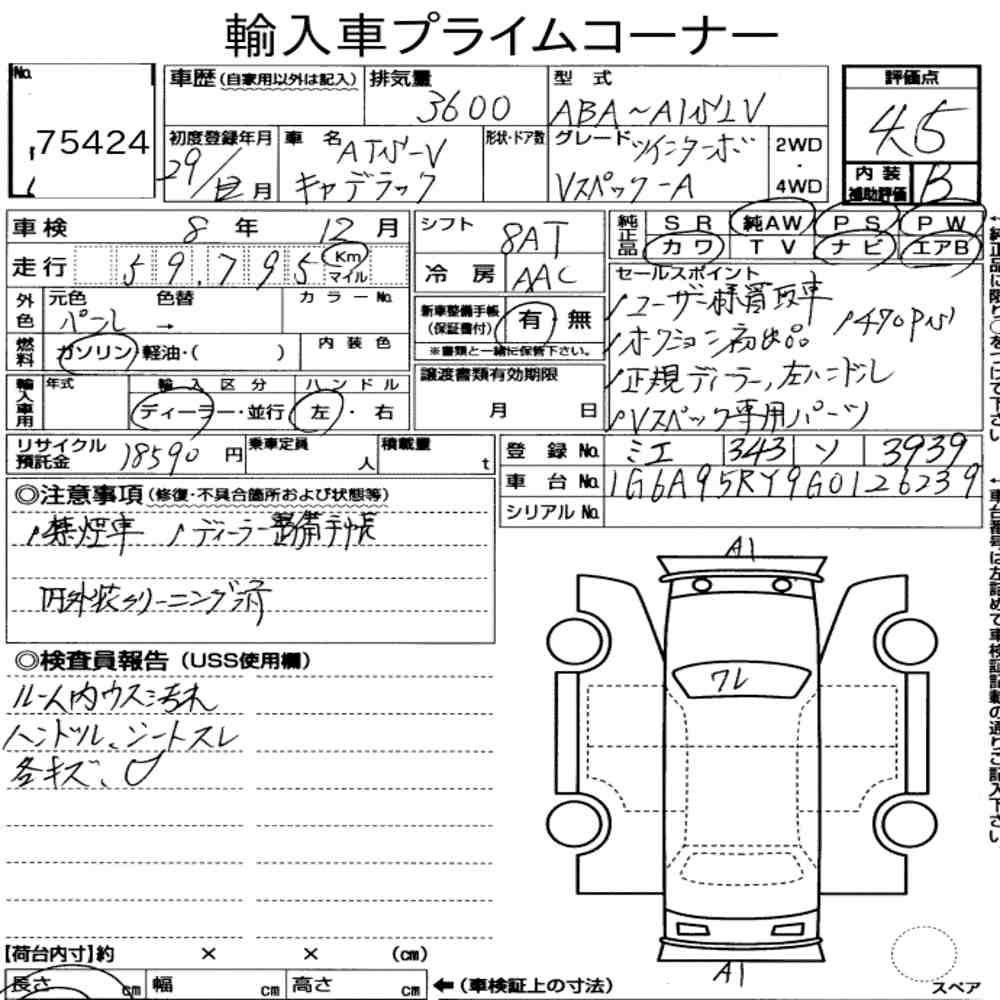 輸入車プライムコーナー
No.
75424
車歴 (自家用以外は記入)
排気量
3600
型式
評価点
4.5
初度登録年月
29/12 月
車名
ATS-V
キャデラック
形状・ドア数
グレード
ツインターボ
VスペックーA
2WD
・
4WD
内装
補助評価
B
車検
8 年 12 月
シフト
8AT
純正品
SR 純AW PS PW
カワ TV ナビ エアB
走行
59,795
Km
マイル
冷房
AAC
セールスポイント
ユーザー様買取車
オクション初出品 470PS
正規ディーラー、左ハンドル
Vスペック専用パーツ
外色
元色 色替
カラーNo.
パール →
新車整備手帳
(保証書付)
有・無
※書類と一緒に保管下さい。
燃料
ガソリン・軽油・( )
内装色
輸入車用
年式
輸入区分
ハンドル
ディーラー・並行
左・右
譲渡書類有効期限
月 日
リサイクル
預託金
18590 円
乗車定員
人
積載量
t
登録No.
ミエ 343 ソ 3939
車台No.
1G6A95RY9G0126239
シリアルNo.
◎注意事項 (修復・不具合箇所および状態等)
禁煙車 ディーラー整備手帳
内外装クリーニング済
◎検査員報告 (USS使用欄)
ルーム内ウスミ汚れ
ハンドル、シートスレ
各キズ、
A1
ワレ
A1
【荷台内寸】約 × × (cm)
長さ cm 幅 cm 高さ cm
←(車検証上の寸法)
スペア
←純正品に限り○をつけて下さい
←車台番号は左詰めで車検証記載の通りご記入下さい